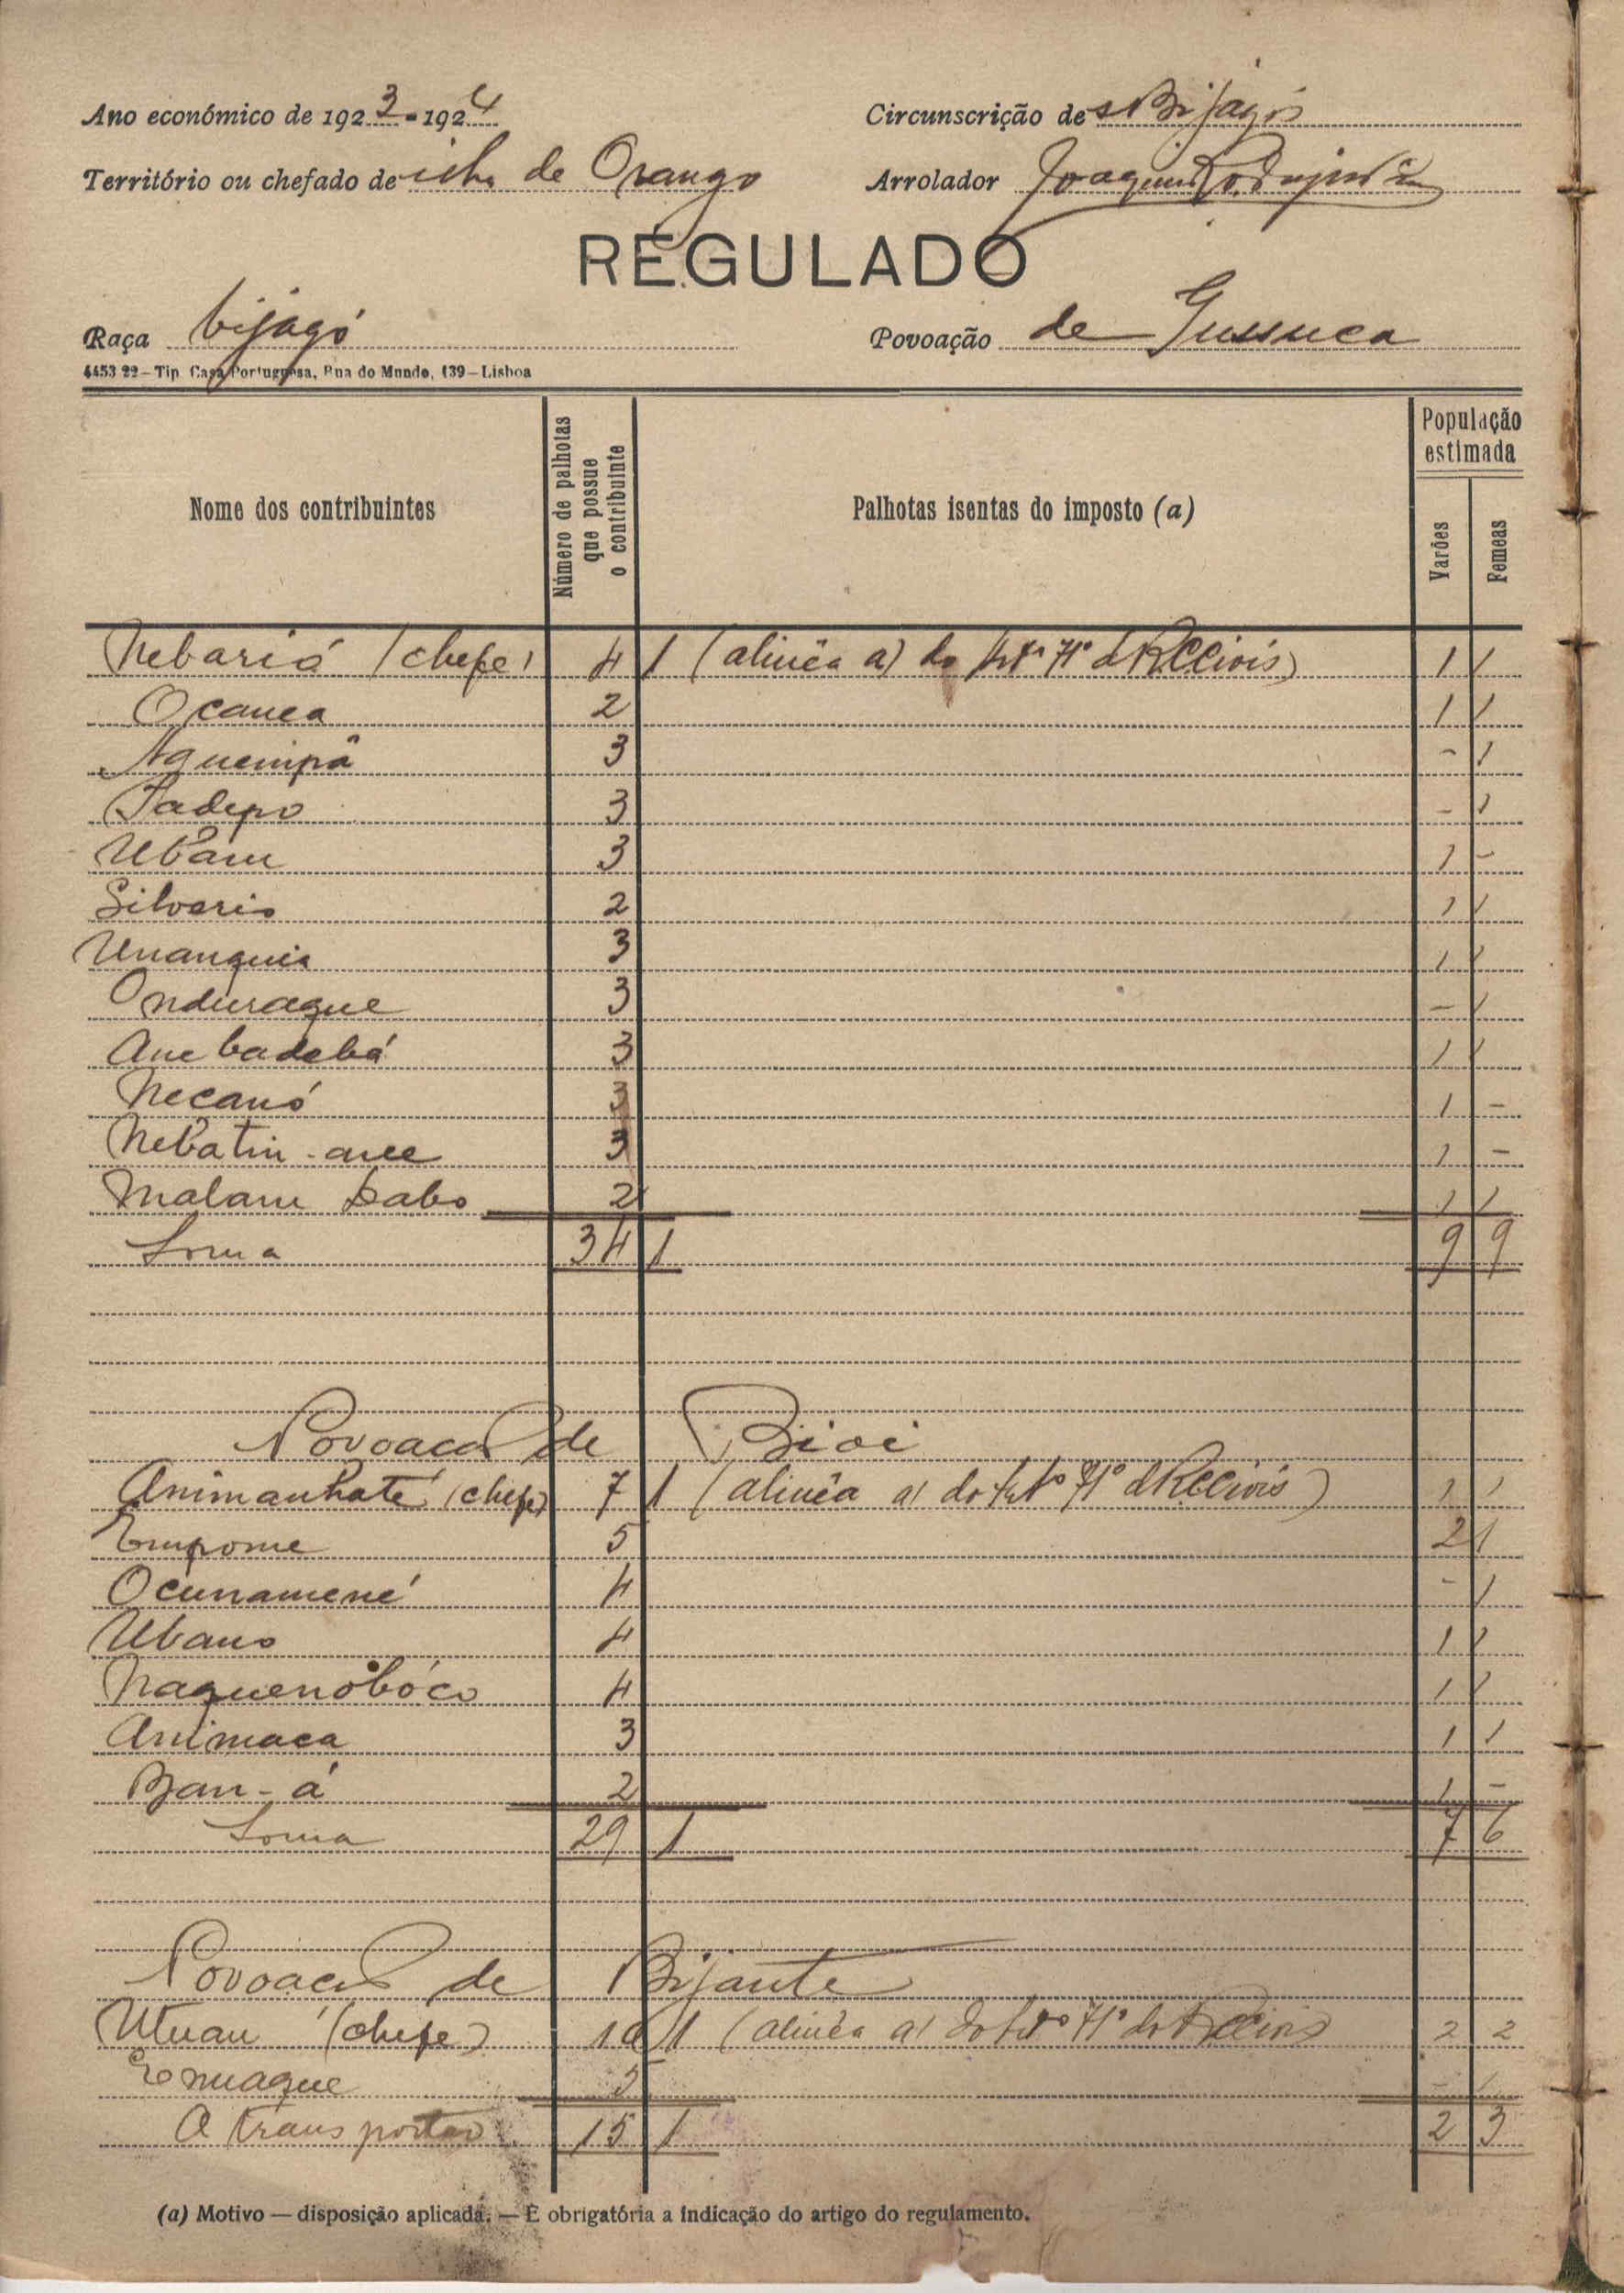 Ano económico de 1923-1924 Circunscrição de s Bijagós
Território ou chefado de ilha de Orango Arrolador Joaquim
REGULADO
Raça bijagó Povoação de Gussuca
4453 22 — Tip. Casa Portuguesa, Rua do Mundo, 139 — Lisboa
Nome dos contribuintes Número de palhotas que possue o contribuinte Palhotas isentas do imposto (a) População estimada Varões Femeas
Nebariá (chefe) 4 1 (alinêa a) do Artº 71º d RCCivis) 1 1
Ocanca 2 1 1
Aqueimpâ 3 - 1
Tadepo 3 - 1
Ubam 3 1 -
Silverio 2 1 1
Unanquia 3 1 1
Onduraque 3 - 1
Ane badebá 3 1 1
Necanó 3 1 -
Nebatin-ane 3 1 -
Malam Sabo 2 1 1
Soma 34 1 9 9
Povoação de Bioi
Animanhaté (chefe) 7 1 (alinêa a) do Artº 71º d RCCivis) 1 1
Empome 5 2 1
Ocunamené 4 - 1
Ubano 4 1 1
Naquenobóco 4 1 1
Animaca 3 1 1
Ban-á 2 1 -
Soma 29 1 7 6
Povoação de Bijante
Utuan (chefe) 10 1 (alinêa a) do Artº 71º do RCCivis) 2 2
Enuaque 5 - 1
A transportar 15 1 2 3
(a) Motivo — disposição aplicada. — É obrigatória a indicação do artigo do regulamento.